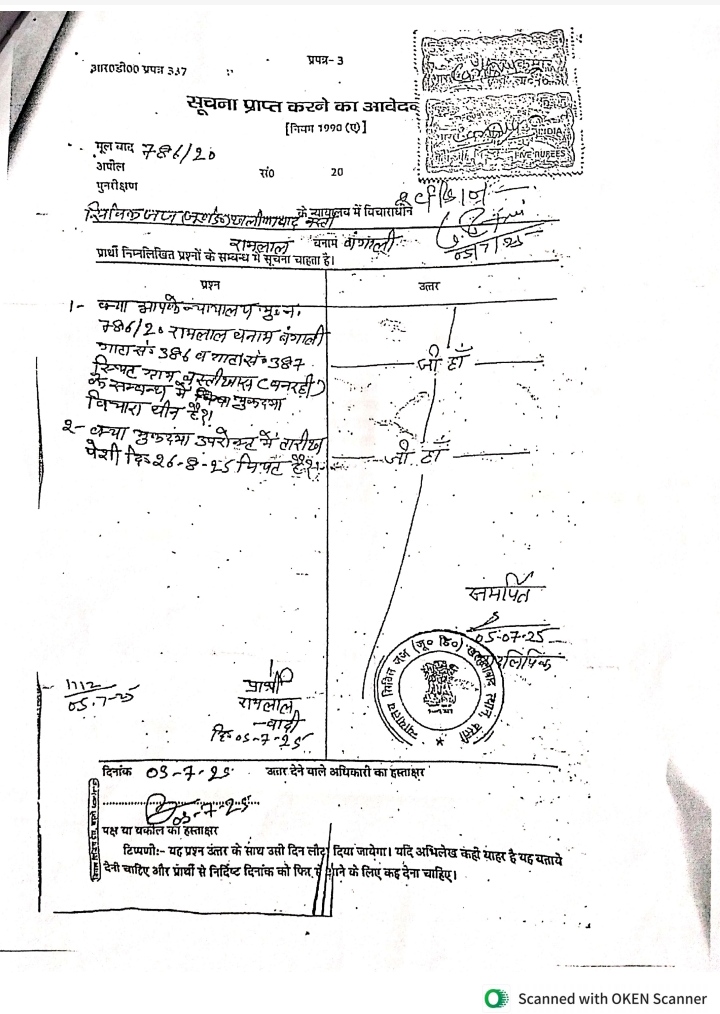 प्रपत्र- 3
आर०डी०० प्रपत्र 337
सूचना प्राप्त करने का आवेदन
[नियम 1990 (ए)]
मूल वाद 786/20
अपील
सं० 20
पुनरीक्षण
के न्यायालय में विचाराधीन
रामलाल बनाम बंगाली
05/7/25
प्रार्थी निम्नलिखित प्रश्नों के सम्बन्ध में सूचना चाहता है।
INDIA
FIVE RUPEES
प्रश्न
उत्तर
1- क्या आपके न्यायालय मु०नं०
786/20 रामलाल बनाम बंगाली
गाटा सं० 386 व गाटा सं० 387
स्थित ग्राम
के सम्बन्ध में मुकदमा
विचाराधीन है?
जी हाँ
2- क्या मुकदमा उपरोक्त में तारीख
पेशी दि० 26-8-25 नियत है?
जी हाँ
समर्पित
05-07-25
न्यायालय सिविल जज (जू० डि०) खलीलाबाद स्थान बस्ती
1712
05-7-25
प्रार्थी
रामलाल
-वादी
दि० 05-7-25
दिनांक 05-7-25 उत्तर देने वाले अधिकारी का हस्ताक्षर
05-7-25
पक्ष या वकील का हस्ताक्षर
टिप्पणी:- यह प्रश्न उत्तर के साथ उसी दिन लौटा दिया जायेगा। यदि अभिलेख कहीं बाहर है यह बताये
देनी चाहिए और प्रार्थी से निर्दिष्ट दिनांक को फिर आने के लिए कह देना चाहिए।
Scanned with OKEN Scanner